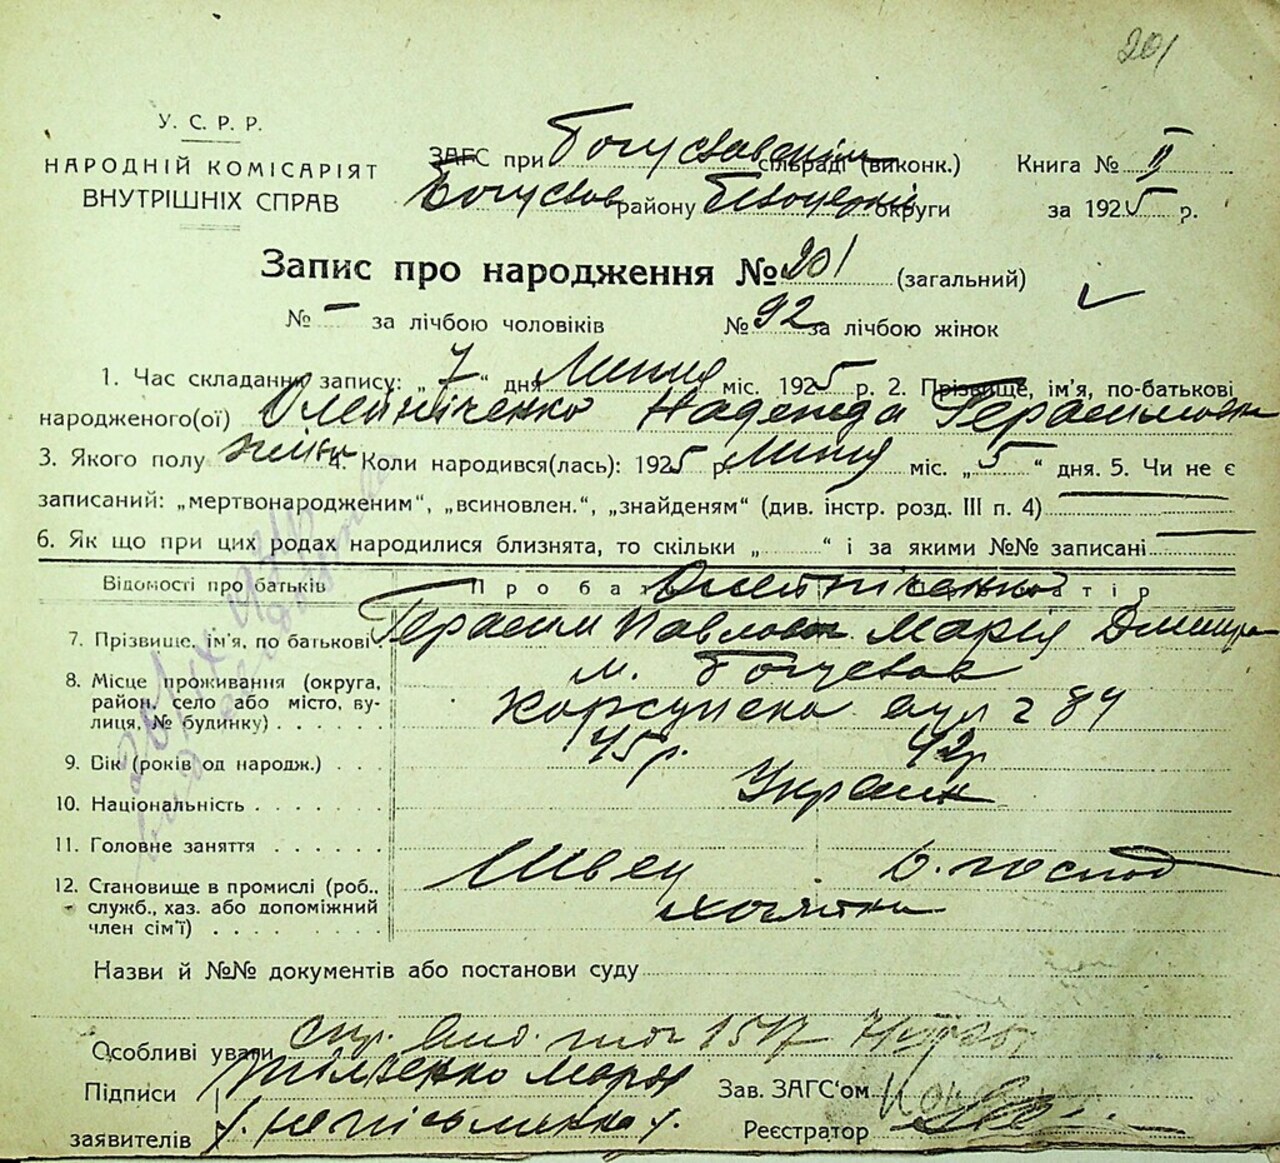 201
У. С. Р. Р.
НАРОДНІЙ КОМІСАРІЯТ
ВНУТРІШНІХ СПРАВ
ЗАГС при Богуславскім сільраді (виконк.)
Книга № II
Богуслав району Білоцерків округи
за 1925 р.
Запис про народження № 201 (загальний)
№ – за лічбою чоловіків № 92 за лічбою жінок
1. Час складання запису: „ 7 “ дня Липня міс. 1925 р. 2. Прізвище, ім'я, по-батькові
народженого(ої) Олейніченко Надежда Герасимовна
3. Якого полу жіноч 4. Коли народився(лась): 1925 р. Липня міс. „ 5 “ дня. 5. Чи не є
записаний: „мертвонародженим“, „всиновлен.“, „знайденям“ (див. інстр. розд. III п. 4)
6. Як що при цих родах народилися близнята, то скільки „ “ і за якими №№ записані
Відомості про батьків
Олейніченко
7. Прізвище, ім'я, по батькові. Герасим Павлов Марія Дмитр
8. Місце проживання (округа, район, село або місто, вулиця, № будинку) м. Богуслав
Корсунска вул 84
9. Вік (років од народж.) 45 р. 42 р
10. Національність Украин
11. Головне заняття
Швец д. господ
12. Становище в промислі (роб., служб., хаз. або допоміжний член сім'ї)
Назви й №№ документів або постанови суду
Особливі уваги
Підписи Марія
Зав. ЗАГС'ом
заявителів /неписьменна/.
Реєстратор